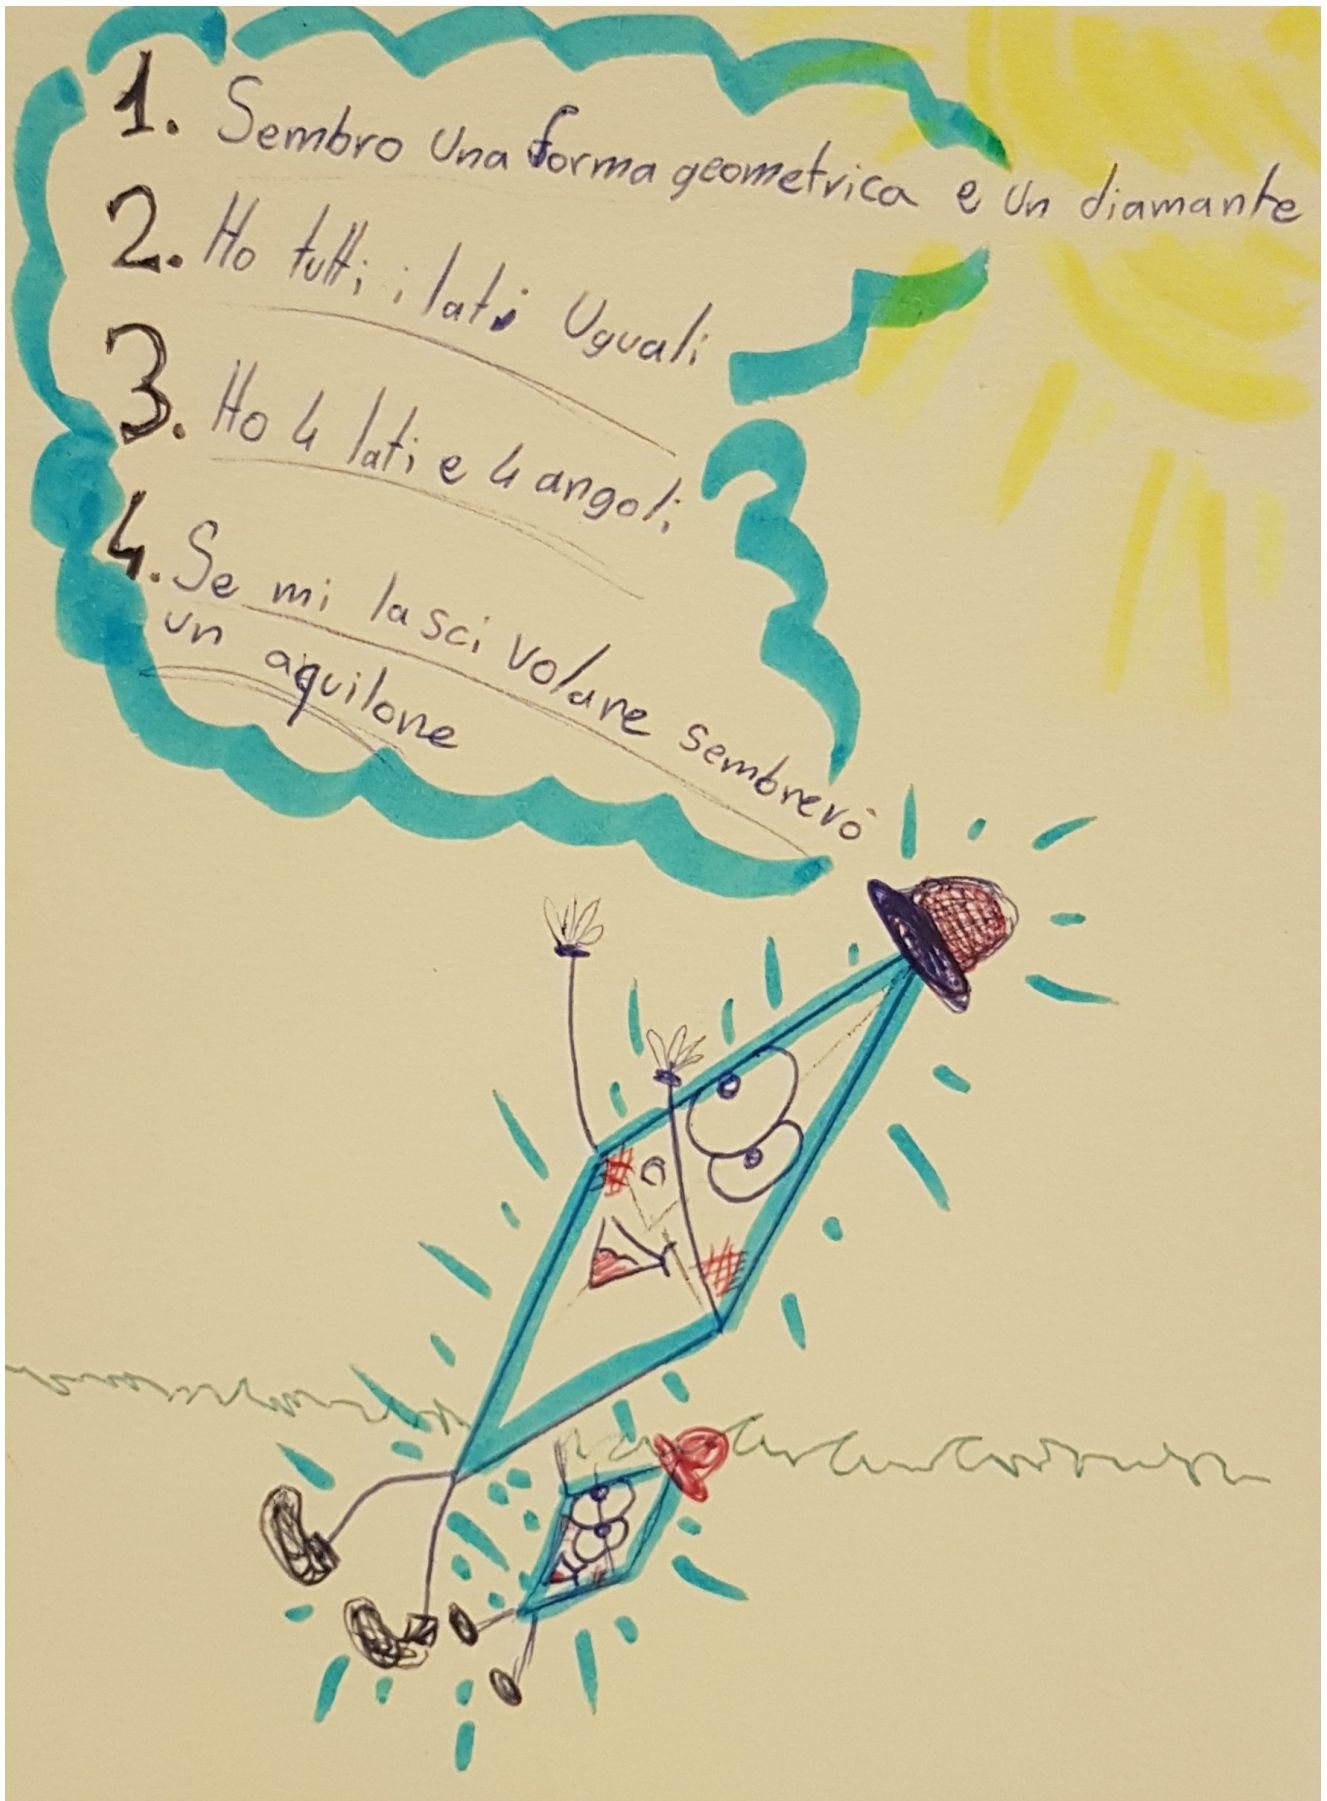 1. Sembro una forma geometrica e un diamante
2. Ho tutti i lati Uguali
3. Ho 4 lati e 4 angoli
4. Se mi lasci volare sembrerò
un aquilone